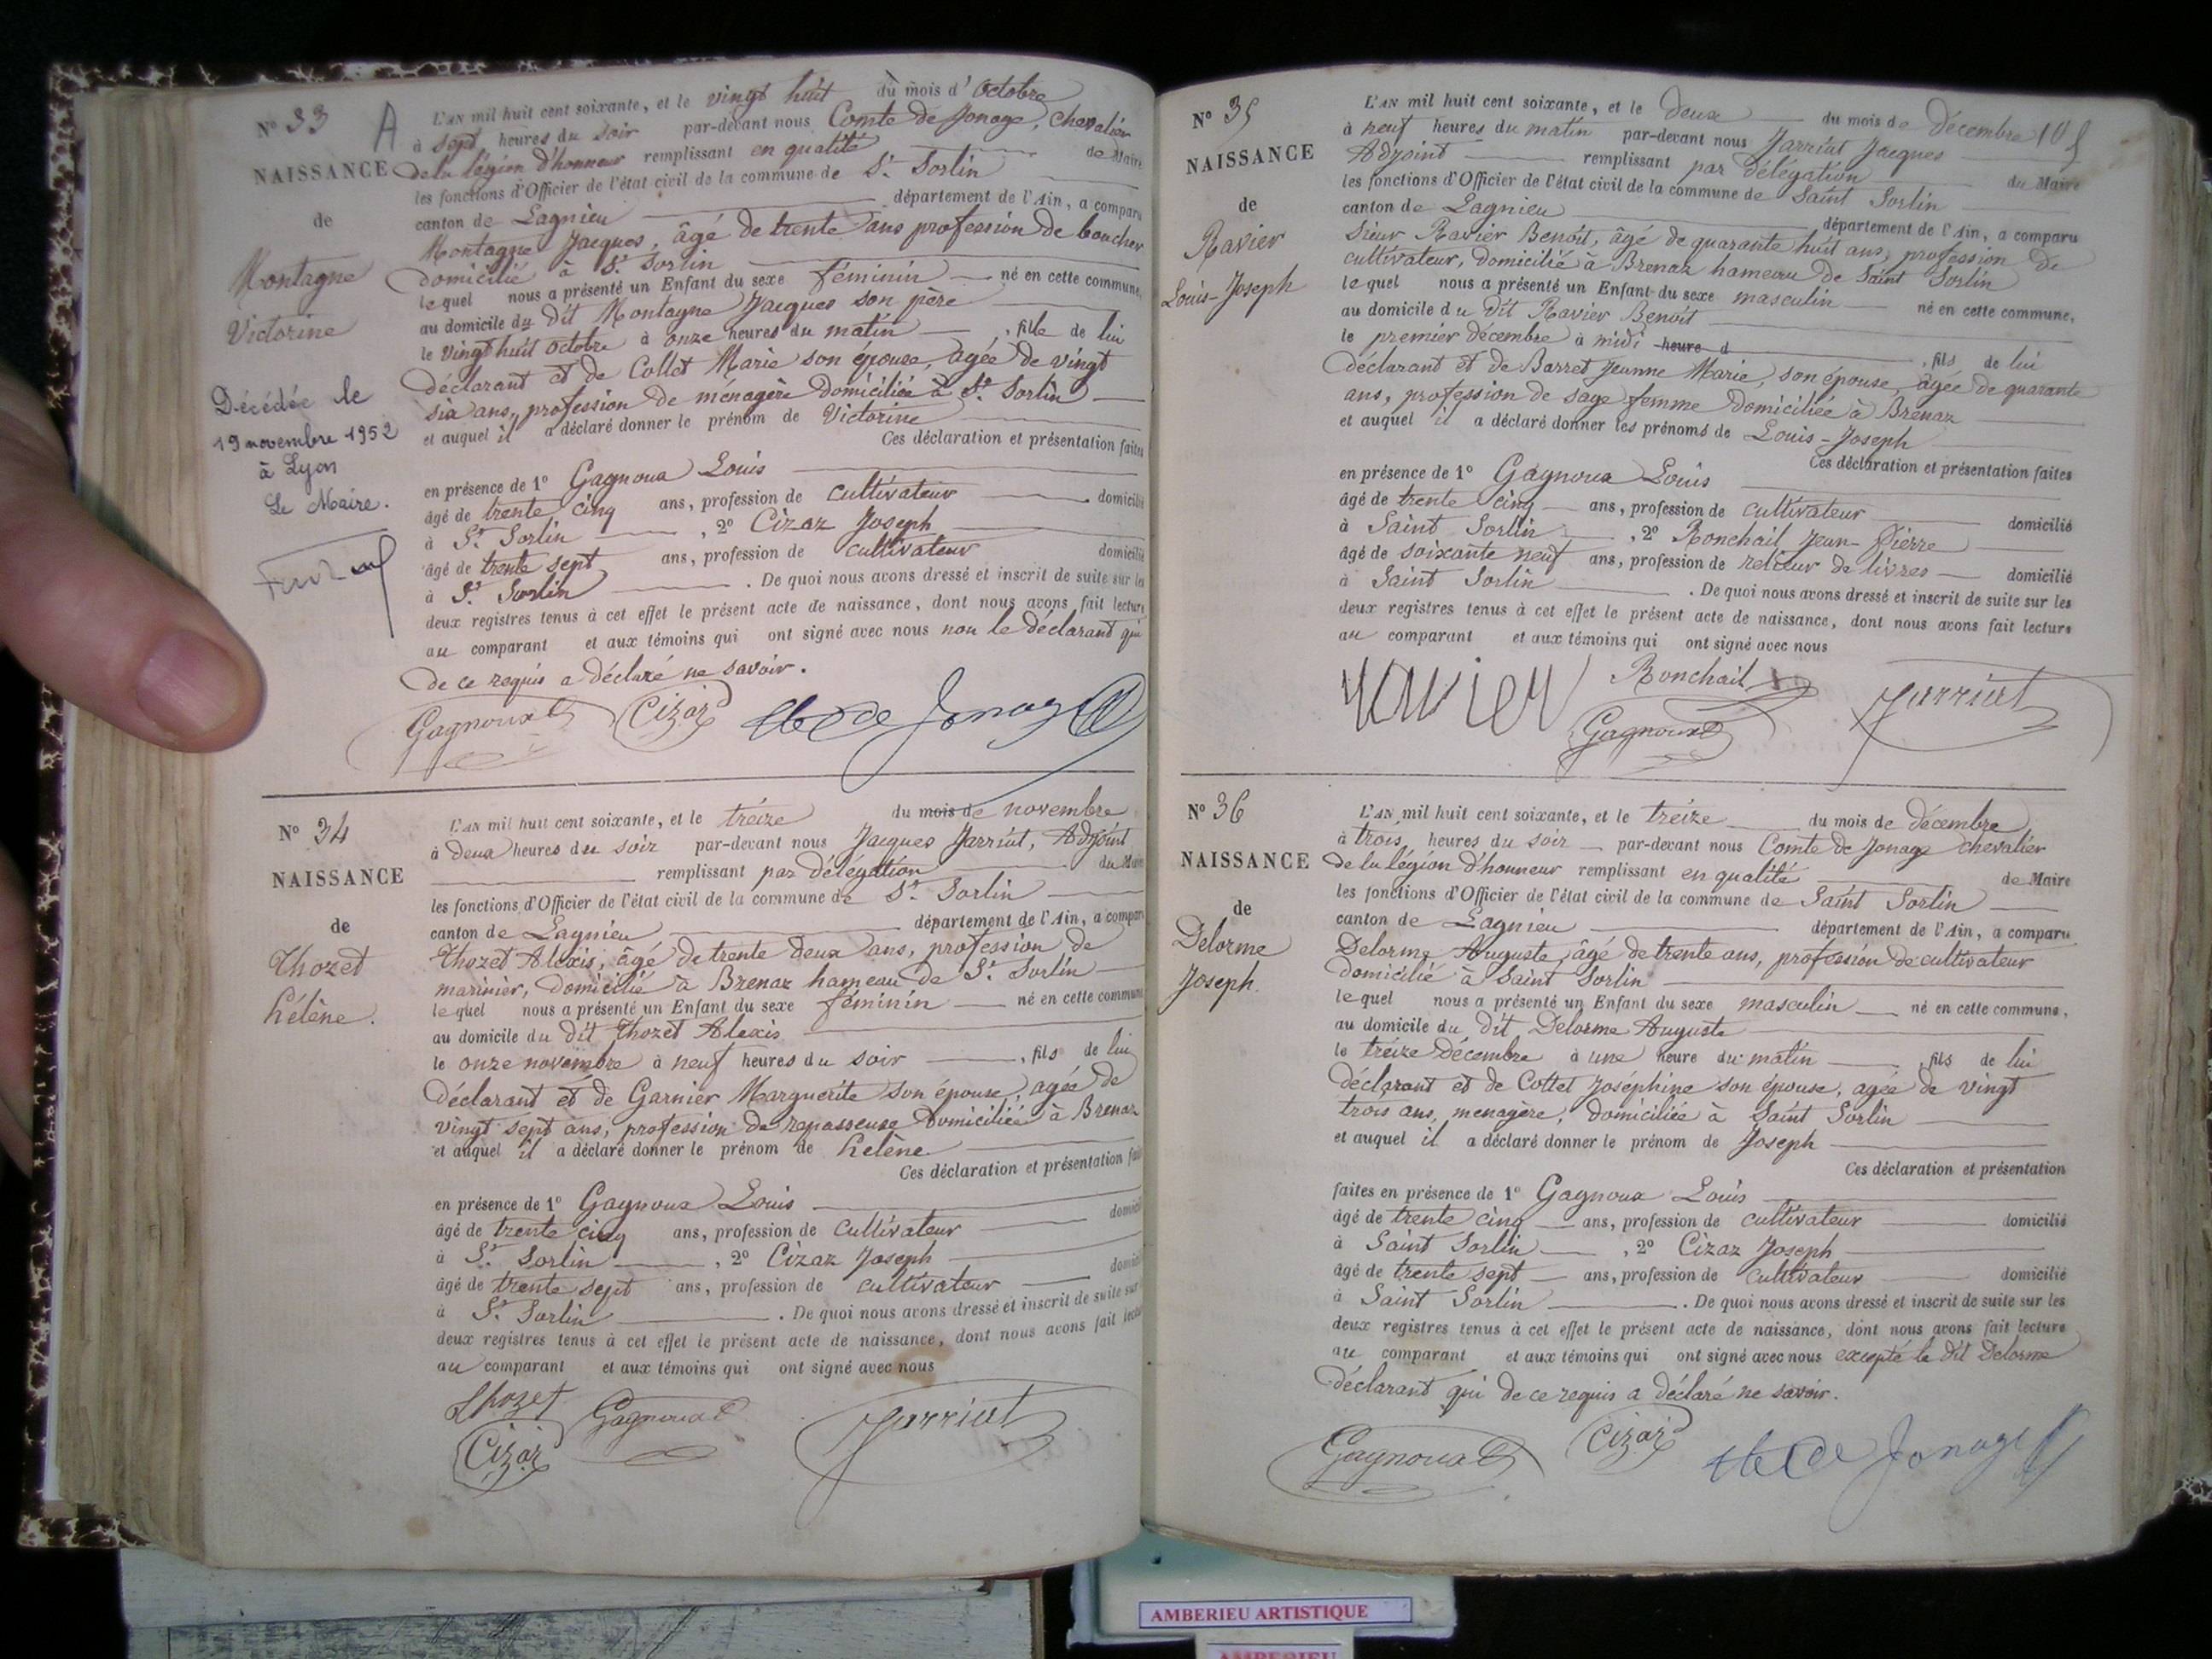 N° 33
A
NAISSANCE
de
Montagne
Victorine
Décédée le
19 novembre 1952
à Lyon
Le Maire.
L'AN mil huit cent soixante, et le vingt huit du mois d'octobre
à sept heures du soir par-devant nous Comte de Jonage, chevalier
de la légion d'honneur remplissant en qualité de Maire
les fonctions d'Officier de l'état civil de la commune de St. Sorlin
canton de Lagnieu département de l'Ain, a comparu
Montagne Jacques, âgé de trente ans profession de boucher
domicilié à St. Sorlin
lequel nous a présenté un Enfant du sexe féminin né en cette commune,
au domicile du dit Montagne Jacques son père
le vingt huit octobre à onze heures du matin, fille de lui
déclarant et de Collet Marie son épouse, agée de vingt
six ans, profession de ménagère domiciliée à St. Sorlin
et auquel il a déclaré donner le prénom de Victorine
Ces déclaration et présentation faites
en présence de 1° Gagnoux Louis
âgé de trente cinq ans, profession de cultivateur domicilié
à St. Sorlin, 2° Cizaz Joseph
âgé de trente sept ans, profession de cultivateur domicilié
à St. Sorlin. De quoi nous avons dressé et inscrit de suite sur les
deux registres tenus à cet effet le présent acte de naissance, dont nous avons fait lecture
au comparant et aux témoins qui ont signé avec nous non le déclarant qui
de ce requis a déclaré ne savoir.
Gagnoux Cizaz de Jonage
N° 34
NAISSANCE
de
Thozet
hélène.
L'AN mil huit cent soixante, et le treize du mois de novembre
à deux heures du soir par-devant nous Jacques Jarriat, Adjoint
remplissant par délégation du Maire
les fonctions d'Officier de l'état civil de la commune de St. Sorlin
canton de Lagnieu département de l'Ain, a comparu
Thozet Alexis, âgé de trente deux ans, profession de
marinier, domicilié à Brenaz hameau de St. Sorlin
lequel nous a présenté un Enfant du sexe féminin né en cette commune
au domicile du dit Thozet Alexis
le onze novembre à neuf heures du soir, fils de lui
déclarant et de Garnier Marguerite son épouse, agée de
vingt sept ans, profession de repasseuse domiciliée à Brenaz
et auquel il a déclaré donner le prénom de hélène
Ces déclaration et présentation fait
en présence de 1° Gagnoux Louis
âgé de trente cinq ans, profession de cultivateur domici
à St. Sorlin, 2° Cizaz Joseph
âgé de trente sept ans, profession de cultivateur domici
à St. Sorlin. De quoi nous avons dressé et inscrit de suite sur
deux registres tenus à cet effet le présent acte de naissance, dont nous avons fait lectu
au comparant et aux témoins qui ont signé avec nous
Thozet Gagnoux Jarriat
Cizaz
105
N° 35
NAISSANCE
de
Ravier
Louis-Joseph
L'AN mil huit cent soixante, et le deux du mois de décembre
à neuf heures du matin par-devant nous Jarriat Jacques
Adjoint remplissant par délégation du Maire
les fonctions d'Officier de l'état civil de la commune de Saint Sorlin
canton de Lagnieu département de l'Ain, a comparu
Sieur Ravier Benoît, âgé de quarante huit ans, profession de
cultivateur, domicilié à Brenaz hameau de Saint Sorlin
lequel nous a présenté un Enfant du sexe masculin né en cette commune,
au domicile du dit Ravier Benoît
le premier décembre à midi heure d, fils de lui
déclarant et de Barret Jeanne Marie, son épouse, agée de quarante
ans, profession de sage femme domiciliée à Brenaz
et auquel il a déclaré donner les prénoms de Louis-Joseph
Ces déclaration et présentation faites
en présence de 1° Gagnoux Louis
âgé de trente cinq ans, profession de cultivateur domicilié
à Saint Sorlin, 2° Ronchail Jean-Pierre
âgé de soixante neuf ans, profession de relieur de livres domicilié
à Saint Sorlin. De quoi nous avons dressé et inscrit de suite sur les
deux registres tenus à cet effet le présent acte de naissance, dont nous avons fait lecture
au comparant et aux témoins qui ont signé avec nous
Ravier Ronchail Jarriat
Gagnoux
N° 36
NAISSANCE
de
Delorme
Joseph.
L'AN mil huit cent soixante, et le treize du mois de décembre
à trois heures du soir par-devant nous Comte de Jonage chevalier
de la légion d'honneur remplissant en qualité de Maire
les fonctions d'Officier de l'état civil de la commune de Saint Sorlin
canton de Lagnieu département de l'Ain, a comparu
Delorme Auguste, âgé de trente ans, profession de cultivateur
domicilié à Saint Sorlin
lequel nous a présenté un Enfant du sexe masculin né en cette commune,
au domicile du dit Delorme Auguste
le treize décembre à une heure du matin, fils de lui
déclarant et de Cottet Joséphine son épouse, agée de vingt
trois ans, ménagère, domiciliée à Saint Sorlin
et auquel il a déclaré donner le prénom de Joseph
Ces déclaration et présentation
faites en présence de 1° Gagnoux Louis
âgé de trente cinq ans, profession de cultivateur domicilié
à Saint Sorlin, 2° Cizaz Joseph
âgé de trente sept ans, profession de cultivateur domicilié
à Saint Sorlin. De quoi nous avons dressé et inscrit de suite sur les
deux registres tenus à cet effet le présent acte de naissance, dont nous avons fait lecture
au comparant et aux témoins qui ont signé avec nous excepté le dit Delorme
déclarant qui de ce requis a déclaré ne savoir.
Gagnoux Cizaz de Jonage
AMBERIEU ARTISTIQUE
AMBERIEU